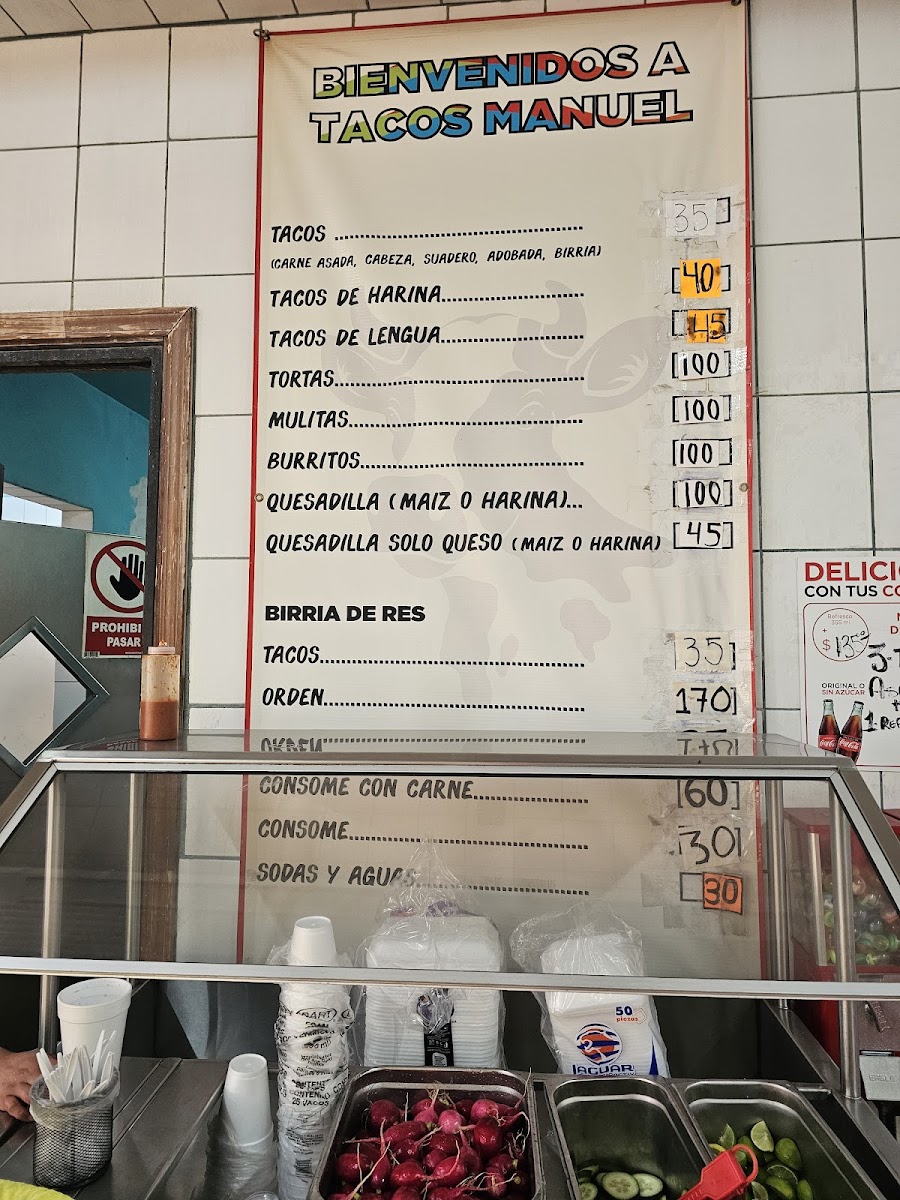 BIENVENIDOS A
TACOS MANUEL
TACOS ........................................ 35
(CARNE ASADA, CABEZA, SUADERO, ADOBADA, BIRRIA)
TACOS DE HARINA....................... [40]
TACOS DE LENGUA....................... [45]
TORTAS........................................ [100]
MULITAS...................................... [100]
BURRITOS.................................... [100]
QUESADILLA (MAIZ O HARINA)... [100]
QUESADILLA SOLO QUESO (MAIZ O HARINA) [45]
BIRRIA DE RES
TACOS.......................................... 35]
ORDEN.......................................... 170]
CONSOME CON CARNE................. [60]
CONSOME..................................... 30]
SODAS Y AGUAS........................... 30
PROHIBI
PASAR
DELICI
CON TUS CO
Refresco
355 ml
+
$
ORIGINAL O
SIN AZÚCAR
Coca-Cola
50
piezas
JAGUAR